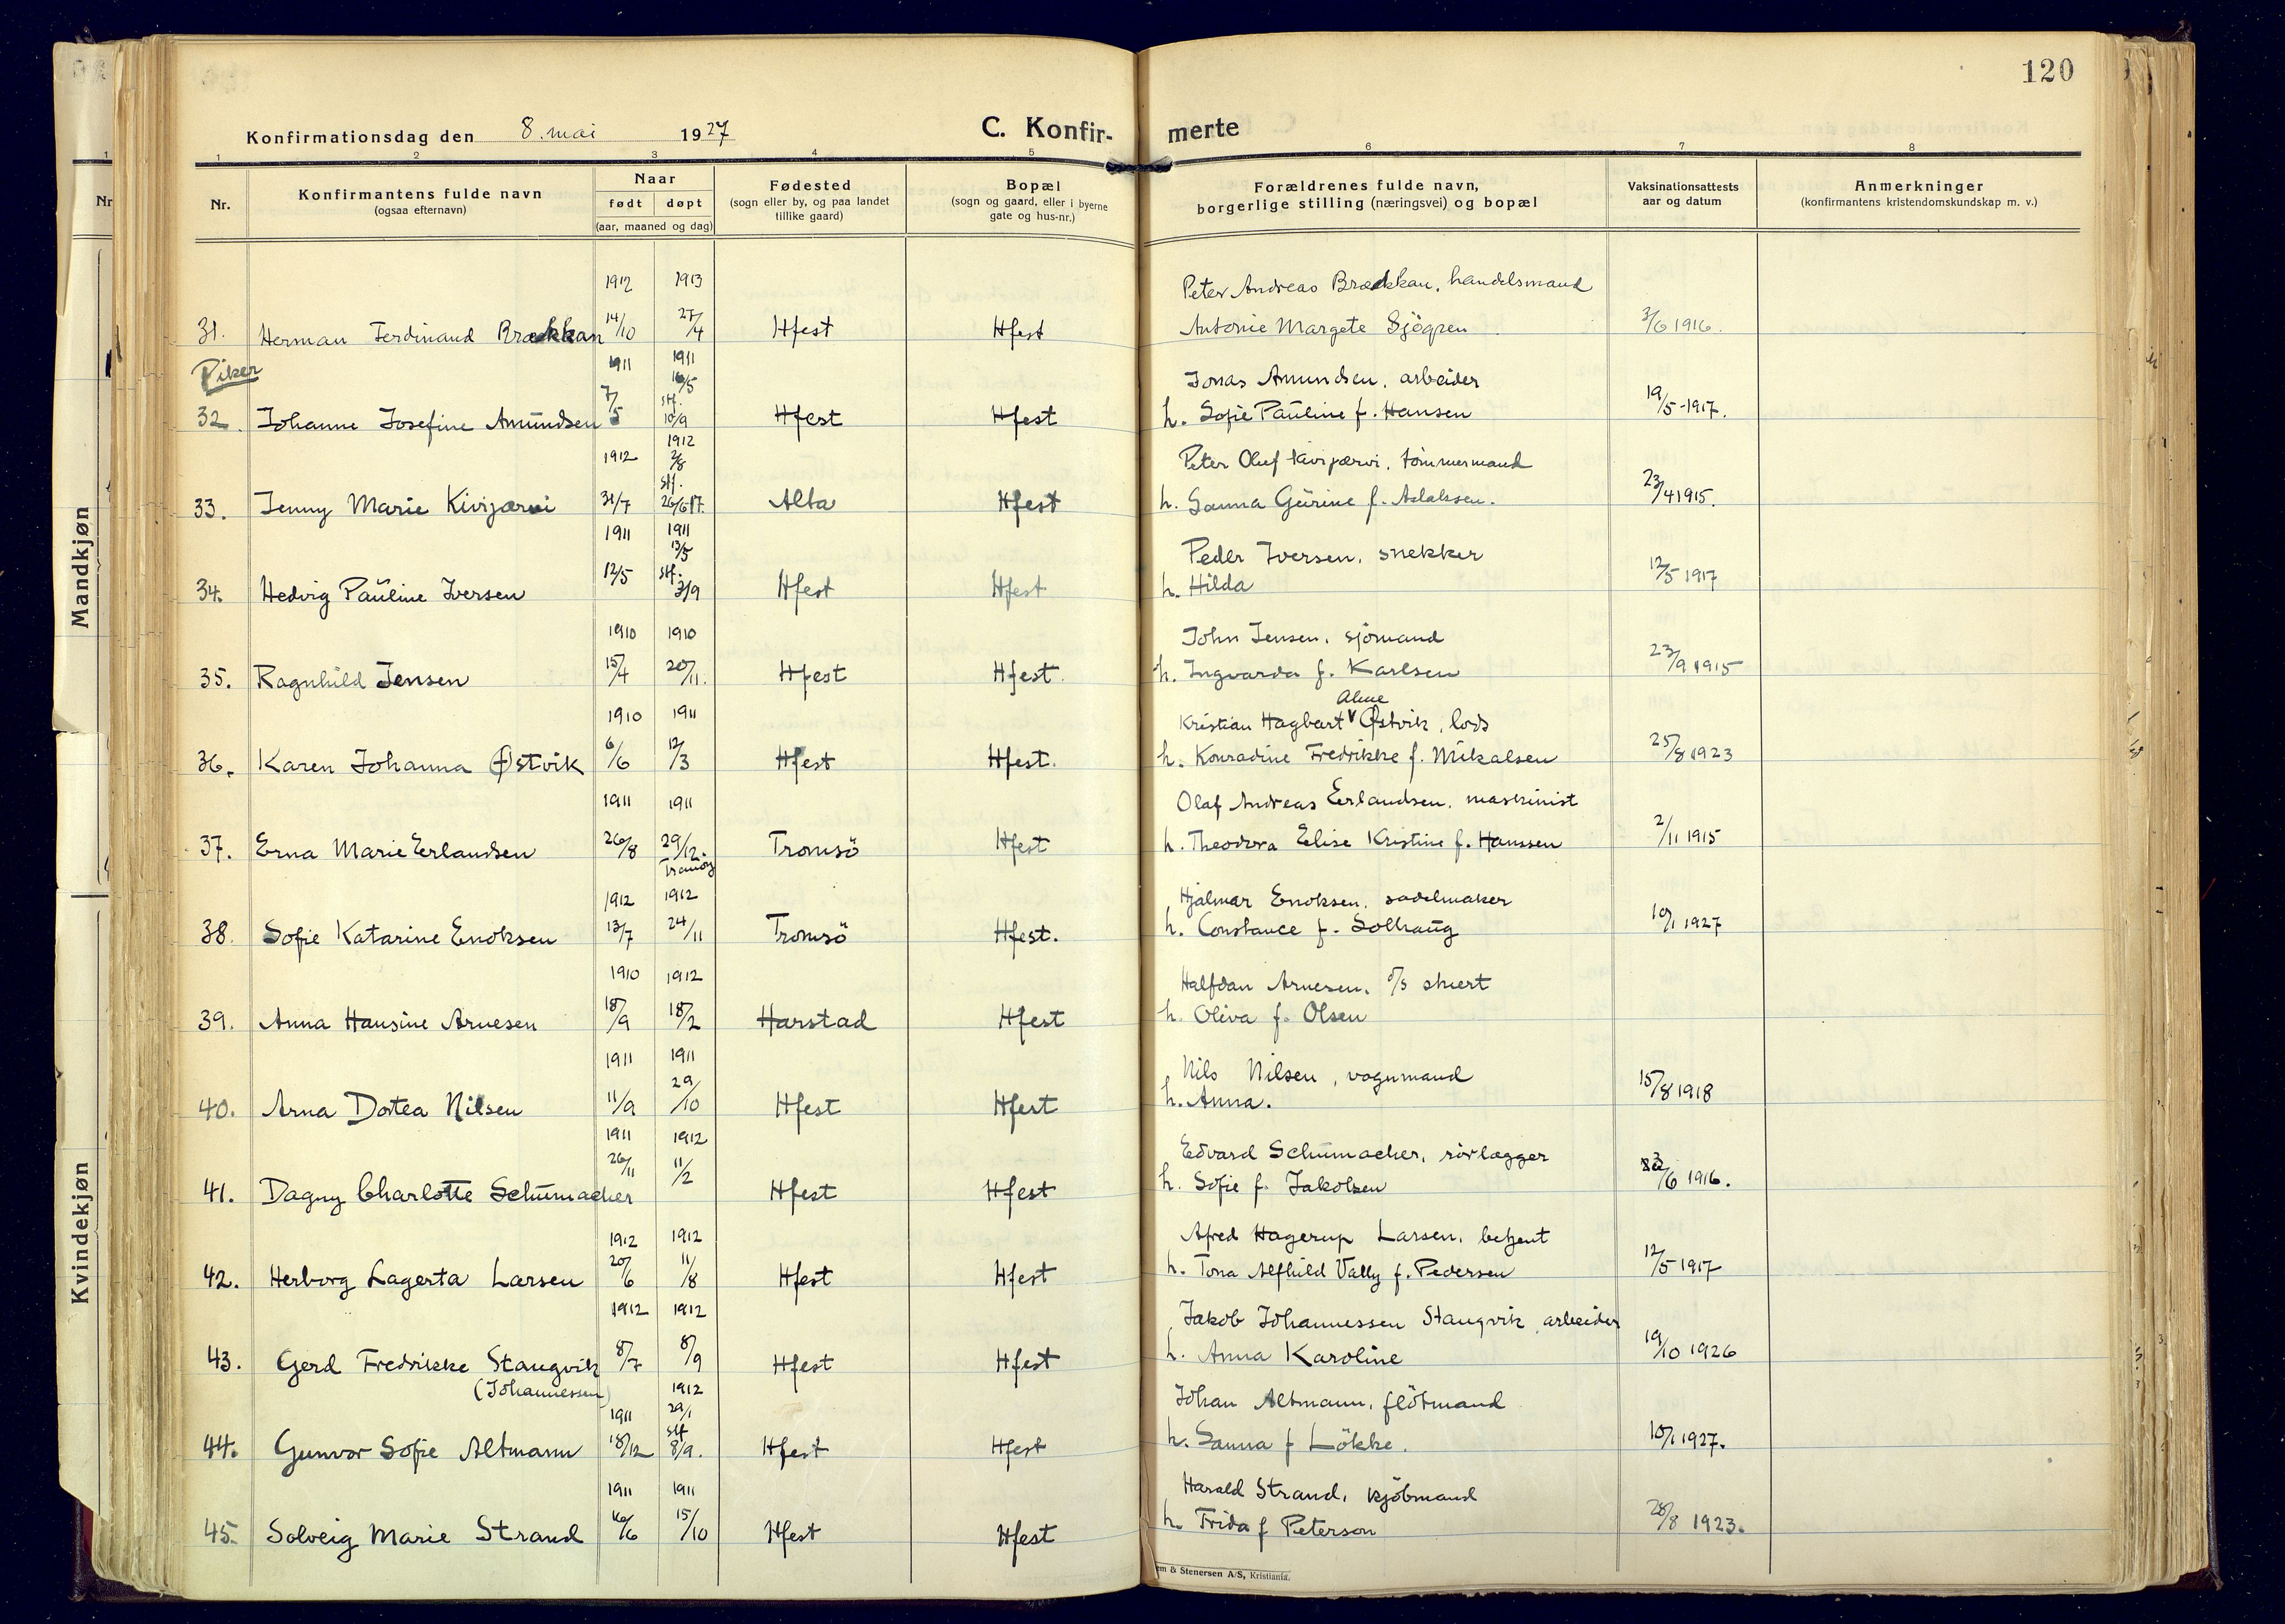 120
Konfirmationsdag den 8. mai 1927
C. Konfir-
merte
1 2 3 4 5 6 7 8
Nr.
Konfirmantens fulde navn
(ogsaa efternavn)
Naar
født døpt
(aar, maaned og dag)
Fødested
(sogn eller by, og paa landet
tillike gaard)
Bopæl
(sogn og gaard, eller i byerne
gate og hus-nr.)
Forældrenes fulde navn,
borgerlige stilling (næringsvei) og bopæl
Vaksinationsattests
aar og datum
Anmerkninger
(konfirmantens kristendomskundskap m. v.)
1912 1913 Peter Andreas Brækkan, handelsmand
31. Herman Ferdinand Brækkan 14/10 27/4 Hfest Hfest Antonie Margete Sjögren 3/6 1916.
Piker
1911 1911 16/5 Jonas Amundsen, arbeider
32. Johanne Josefine Amundsen 7/5 stf. 10/9 Hfest Hfest h. Sofie Pauline f. Hansen 19/5-1917.
1912 1912 2/8 Peter Oluf Kivijærvi, tömmermand
33. Jenny Marie Kivijærvi 31/7 stf. 26/6 17. Alta Hfest h. Sanna Gurine f. Aslaksen. 23/4 1915.
1911 1911 13/5 Peder Iversen, snekker
34. Hedvig Pauline Iversen 12/5 stf. 3/9 Hfest Hfest h. Hilda 12/5 1917
1910 1910 John Jensen, sjömand
35. Ragnhild Jensen 15/4 20/11. Hfest Hfest. h. Ingvarda f. Karlsen 23/9 1915
Alme
1910 1911 Kristian Hagbart v Østvik, lods
36. Karen Johanna Østvik 6/6 12/3 Hfest Hfest. h. Konradine Fredrikke f. Mikalsen 25/8 1923
1911 1911 Olaf Andreas Erlandsen, maskinist
37. Erna Marie Erlandsen 26/8 29/12. Tromsö Hfest h. Theodora Elise Kristine f. Hanssen 2/11 1915
1912 1912 Hjalmar Enoksen, sadelmaker
38. Sofie Katarine Enoksen 13/7 24/11 Tromsö Hfest. h. Constance f. Solhaug 10/1 1927
1910 1912 Halfdan Arnesen, stuert
39. Anna Hansine Arnesen 18/9 18/2 Harstad Hfest h. Oliva f. Olsen
1911 1911 Nils Nilsen, vognmand
40. Arna Dotea Nilsen 11/9 29/10 Hfest Hfest h. Anna. 15/8 1918
1911 1912 Edvard Schumacher, rörlægger
41. Dagny Charlotte Schumacher 26/11 11/2 Hfest Hfest h. Sofie f. Jakobsen /6 1916.
1912 1912 Afred Hagerup Larsen, betjent
42. Herborg Lagerta Larsen 20/6 11/8 Hfest Hfest h. Tora Alfhild Vally f. Pedersen 12/5 1917
1912 1912 Jakob Johannessen Stangvik, arbeider
43. Gerd Fredrikke Stangvik 8/7 8/9 Hfest Hfest h. Anna Karoline 19/10 1926
(Johannessen)
1911 1912 29/1 Johan Altmann, flötmand
44. Gunvor Sofie Altmann 18/12 stf 8/9. Hfest Hfest h. Sanna f Lökke. 10/1 1927.
1911 1911 Harald Strand, kjöbmand
45. Solveig Marie Strand 16/6 15/10 Hfest Hfest h. Frida f Peterson 28/8 1923.
em & Stenersen A/S, Kristiania.
Mandkjøn
Kvindekjøn
1
Nr